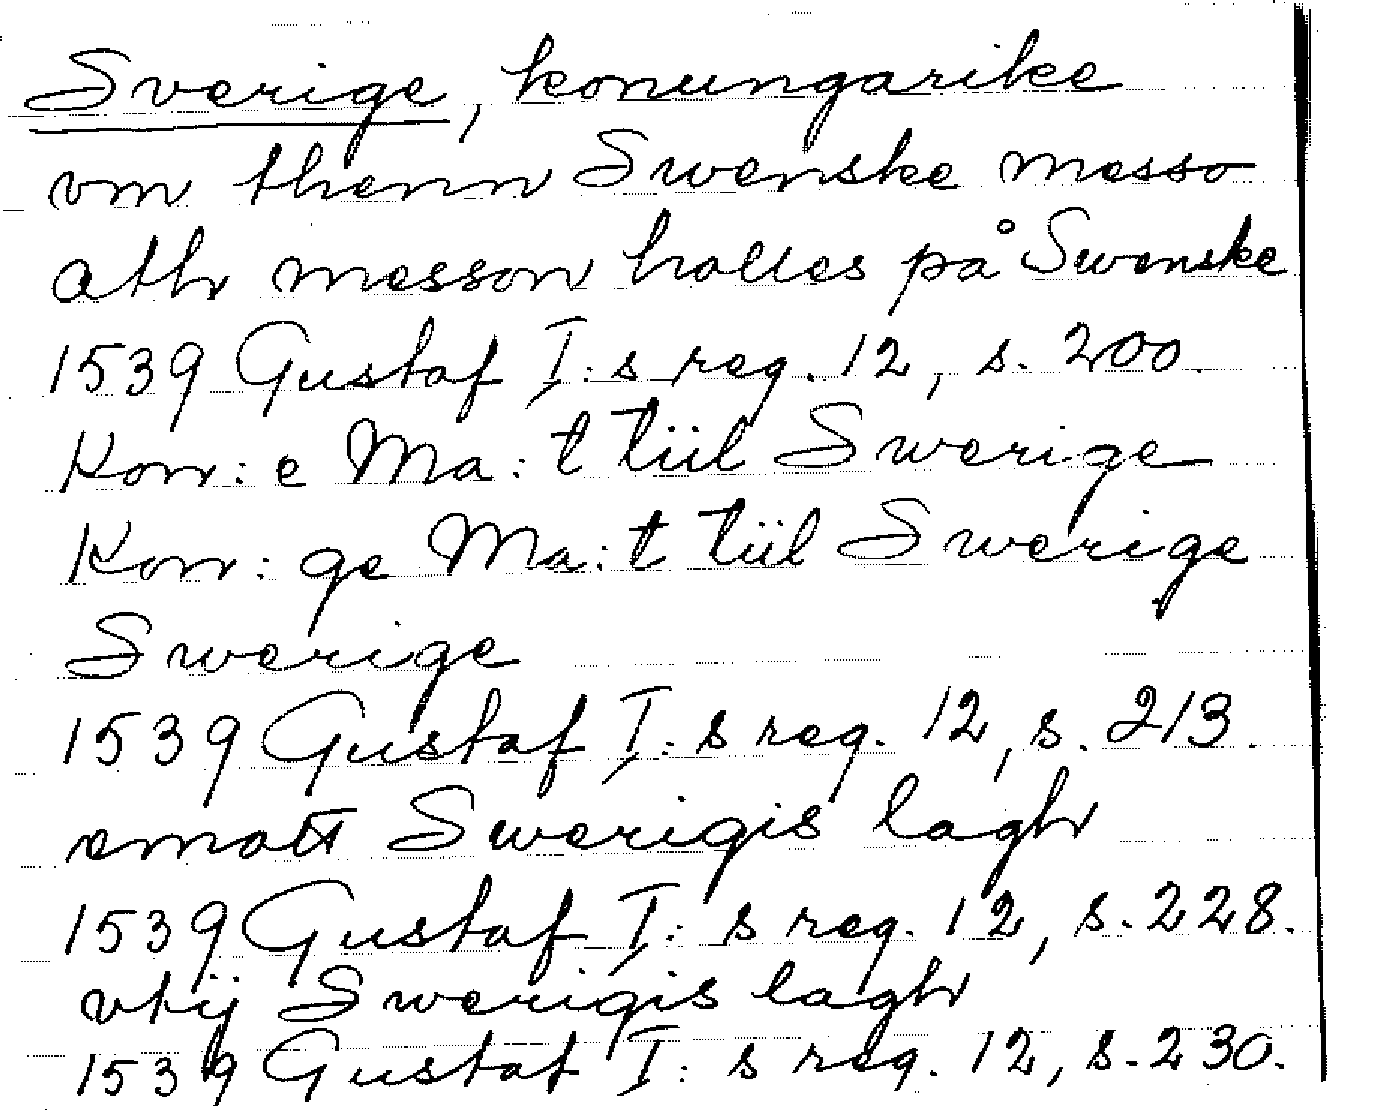 Sverige, konungarike
vm thenn Swenske messo
ath messon holles på Swenske
1539 Gustaf I:s reg. 12, s. 200.
Kon: e Ma: t tiil Swerige
Kon: ge Ma: t tiil Swerige
Swerige
1539 Gustaf I:s reg. 12, s. 213.
emott Swerigis lagh
1539 Gustaf I:s reg. 12, s. 228.
vtij Swerigis lagh
1539 Gustaf I:s reg. 12, s. 230.